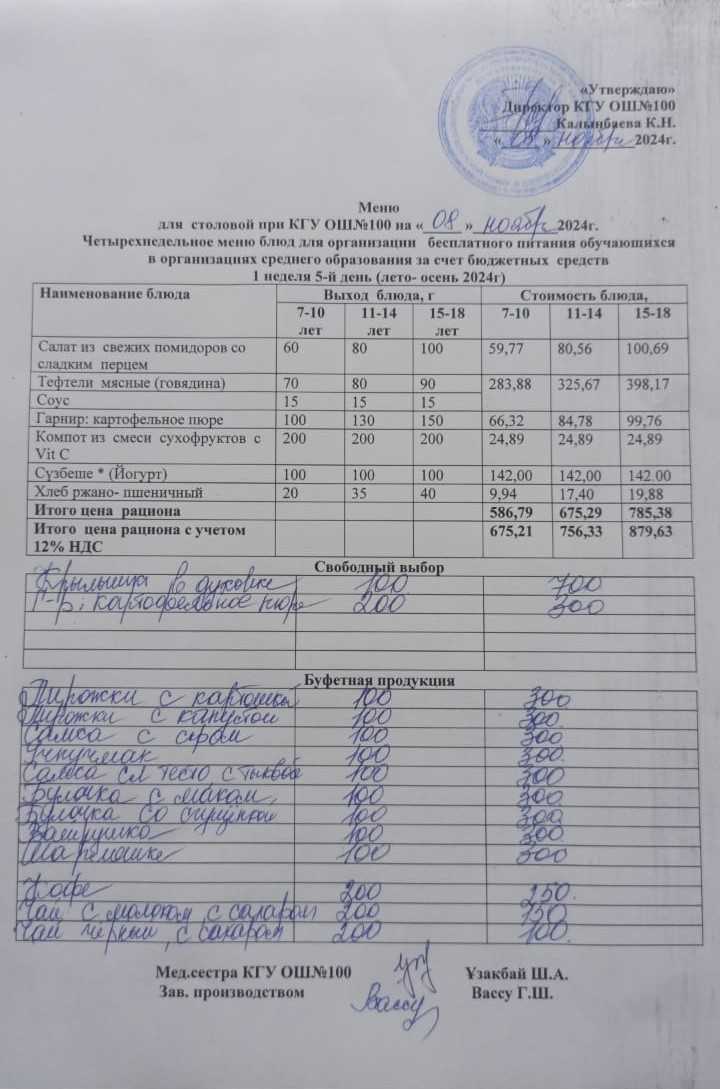 «Утверждаю»
Директор КГУ ОШ№100
Калынбаева К.Н.
« 08 » ноября 2024г.
Меню
для столовой при КГУ ОШ№100 на « 08 » ноябр 2024г.
Четырехнедельное меню блюд для организации бесплатного питания обучающихся
в организациях среднего образования за счет бюджетных средств
1 неделя 5-й день (лето- осень 2024г)
Наименование блюда Выход блюда, г Стоимость блюда,
7-10 лет 11-14 лет 15-18 лет 7-10 11-14 15-18
Салат из свежих помидоров со 60 80 100 59,77 80,56 100,69
сладким перцем
Тефтели мясные (говядина) 70 80 90 283,88 325,67 398,17
Соус 15 15 15
Гарнир: картофельное пюре 100 130 150 66,32 84,78 99,76
Компот из смеси сухофруктов с 200 200 200 24,89 24,89 24,89
Vit C
Сүзбеше * (Йогурт) 100 100 100 142,00 142,00 142.00
Хлеб ржано- пшеничный 20 35 40 9,94 17,40 19,88
Итого цена рациона 586,79 675,29 785,38
Итого цена рациона с учетом 675,21 756,33 879,63
12% НДС
Свободный выбор
Крылышка в духовке 100 700
Г-р: картофельное пюре 200 300
Буфетная продукция
Пирожки с картошкой 100 300
Пирожки с капустой 100 300.
Самса с сыром 100 300
Учпучмак 100 300.
Самса сл тесто с тыквой 100 300
Булочка с маком, 100 300.
Булочка со сгущенкой 100 300
Ватрушка 100 300.
100 300
Кофе 200 250.
Чай с молоком, с сахаром 200 150
Чай черный, с сахаром 200 100.
Мед.сестра КГУ ОШ№100 Ұзакбай Ш.А.
Зав. производством Вассу Вассу Г.Ш.